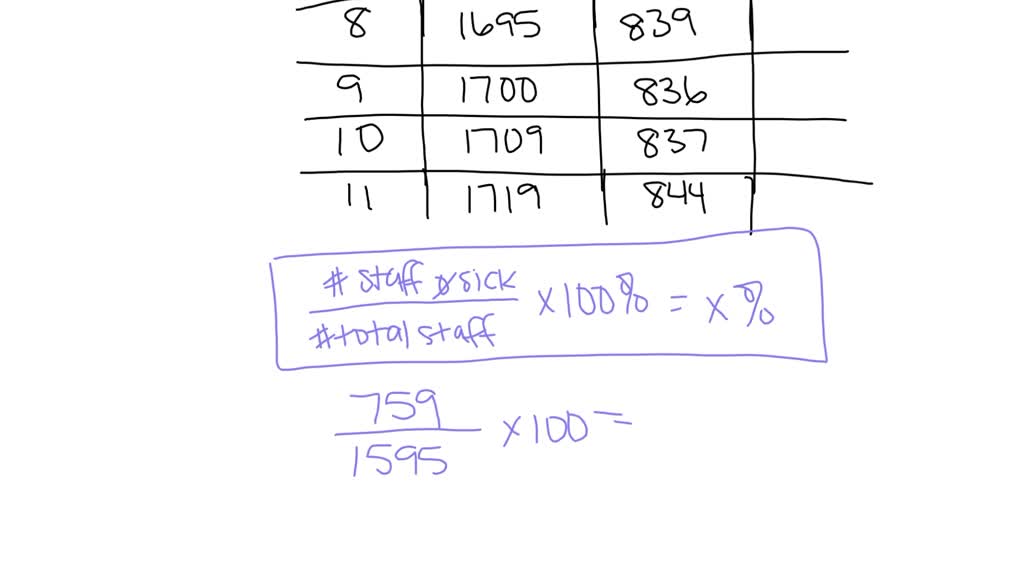 8 1695 839
9 1700 836
10 1709 837
11 1719 844
# staff sick
#total staff
×100% = x%
759
1595
×100=